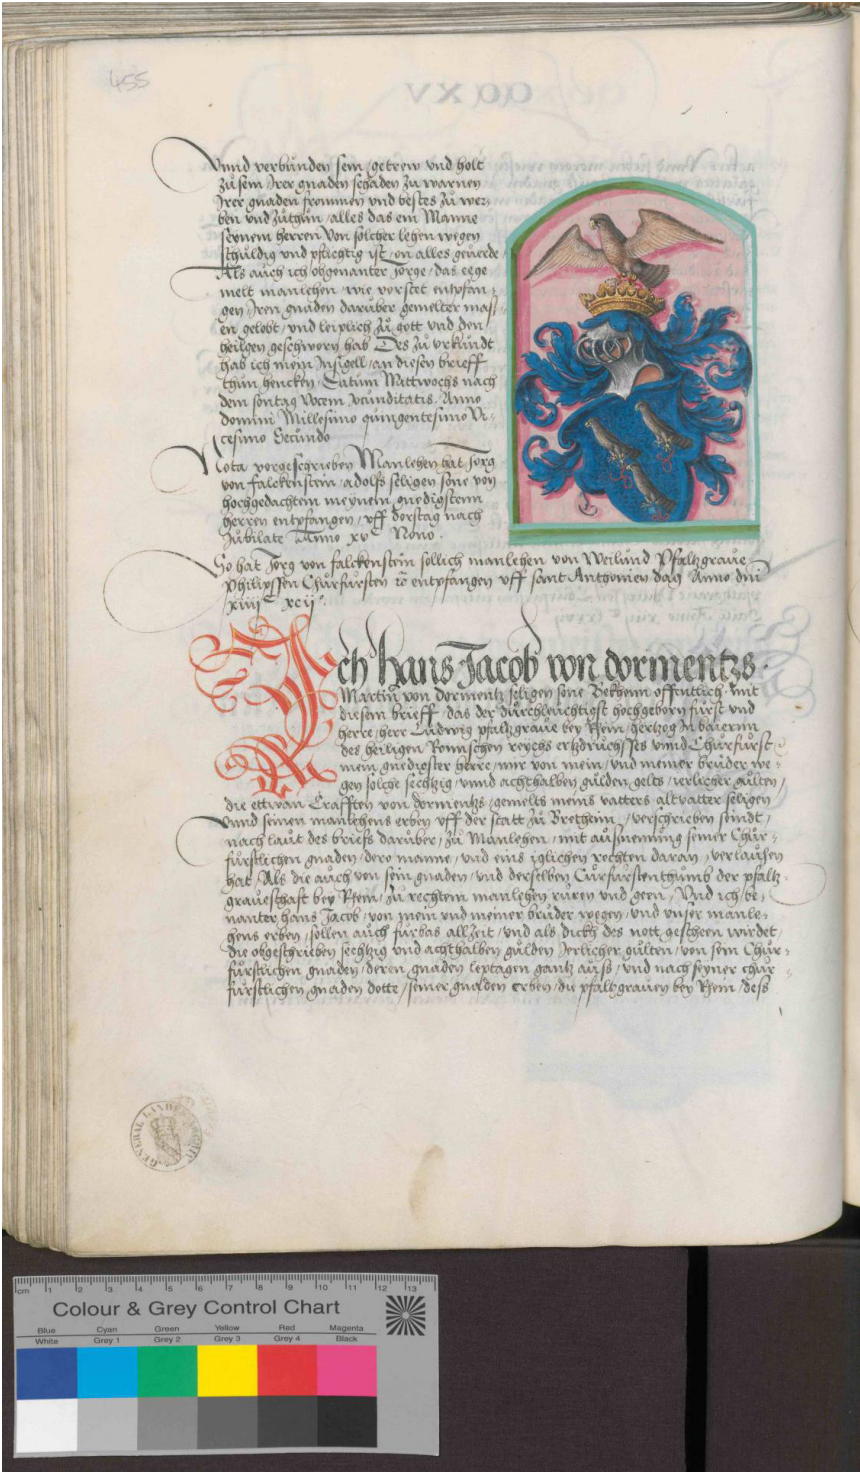 455
Vnnd verbunden sein, getrew vnd holt
zu sein Irer gnaden schaden zu warnen
Irer gnaden frommen vnd bestes zu wer-
ben vnd zuthun, alles das ein Manne
seynem herren von solcher lehen wegen
schuldig vnd pflichtig ist, on alles geuerde
Als auch ich obgenanter Jorge, das ege
melt manlehen, wie vorstet entpfan-
gen, Iren gnaden daruber gemelter mass
en gelobt, vnd leiplich zu gott vnd den
heilgen geschworn hab Des zu vrkundt
hab ich mein Insigell, an diesen brieff
thun hencken, Datum Mittwochs nach
dem sontag Vocem Iocunditatis. Anno
domini Millesimo quingentesimo Vi-
cesimo Secundo
Nota vorgeschrieben Manlehen hat Jorg
von falckenstein, adolfs seligen sone von
hochgedachtem meynem gnedigstenn
herren entpfangen, vff dorstag nach
Jubilate Anno xvᶜ Nono.
So hat Jorg von falckenstein sollich manlehen von Weilund Pfaltzgraue
Philipssen Churfursten ⁊c entpfangen vff sant Anthonien dag Anno dni
xiiiiᶜ xcijᵒ.
Ich hans Jacob von dormentzs.
Martin von dormentz seligen sone Bekhenn offentlich mit
diesem brieff, das der durchleuchtigst hochgeborn furst vnd
herre, herr Ludwig pfaltzgraue bey Rhein, hertzog In baiernn
des heiligen Romischen reychs ertzdruchsses vnnd Churfurst
mein gnedigster herre, mir von mein, vnd meiner bruder we-
gen solche sechtzig, vnnd achthalben gulden, gelts, ierlicher gulten,
die ettwan Crafften von dormentzs, gemelts meins vatters altvatter seligen
vnnd seinen manlehens erben vff der statt zu Bretheim, verschrieben seindt,
nach laut des briefs daruber, zu Manlehen, mit außnemung seiner Chur-
furstlichen gnaden, dero manne, vnd eins iglichen rechten daran, verlauhen
hat, Als die auch von sein gnaden, vnd derselben Curfurstenthumb der pfaltz-
graueschaft bey Rhein, zu rechtem manlehen ruren vnd geen, Vnd ich, be-
nanter hans Jacob, von mein vnd meiner bruder wegen, vnd vnser manle-
hens erben, sollen auch furbas allzeit, vnd als dickh des nott gescheen wirdet,
die obgeschrieben sechtzig vnd achthalben gulden Jerlicher gulten, von sein Chur-
furstlichen gnaden, deren gnaden leptagen gantz auß, vnd nach seyner chur
furstlichen gnaden dotte, seiner gnaden erben, die pfaltzgrauen bey Rhein, deß
GENERAL LANDES ARCHIV
cm 1 2 3 4 5 6 7 8 9 10 11 12 13
Colour & Grey Control Chart
Blue Cyan Green Yellow Red Magenta
White Grey 1 Grey 2 Grey 3 Grey 4 Black